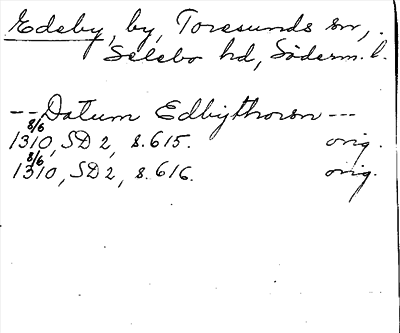 Edeby, by, Toresunds sn,
Selebo hd, Söderm. l.
-- Datum Edbythorn ---
1310 8/6, SD 2, s. 615. orig.
1310 8/6, SD 2, s. 616. orig.